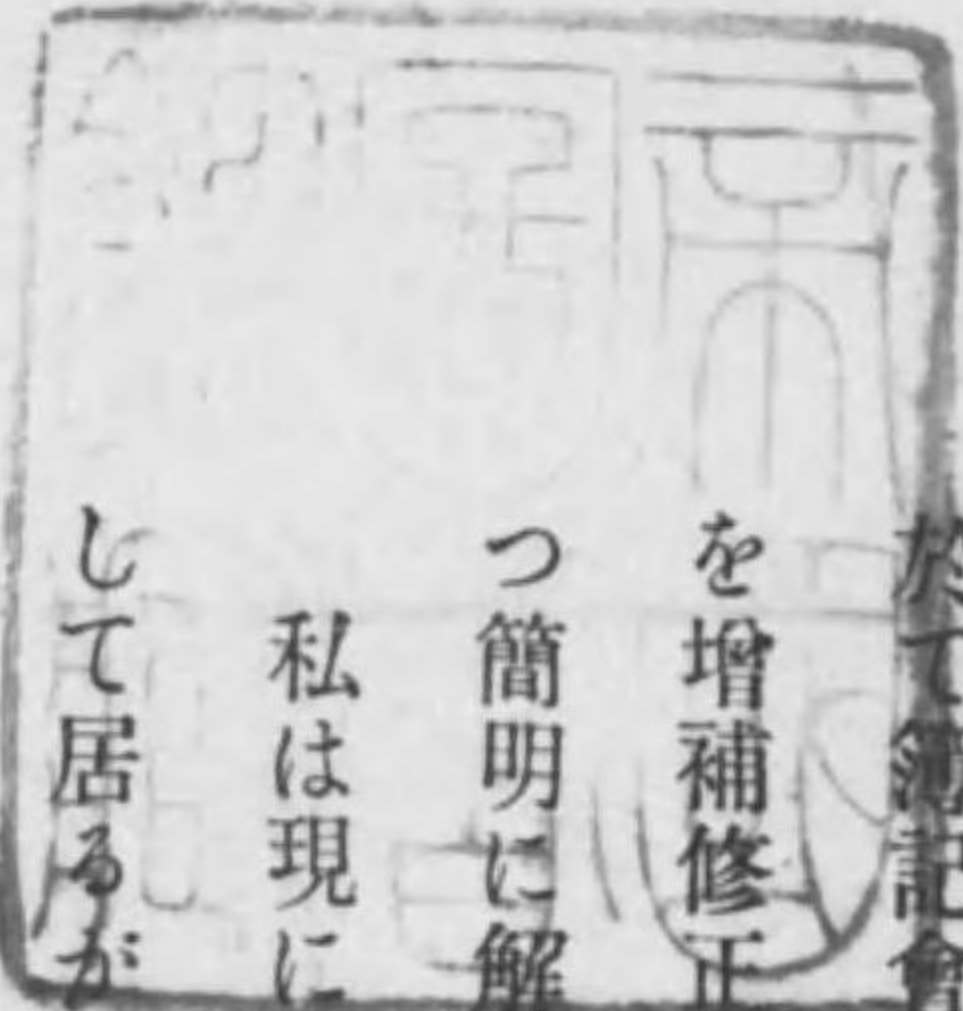 於て簿記會
を增補修正
つ簡明に解
私は現に
して居るが